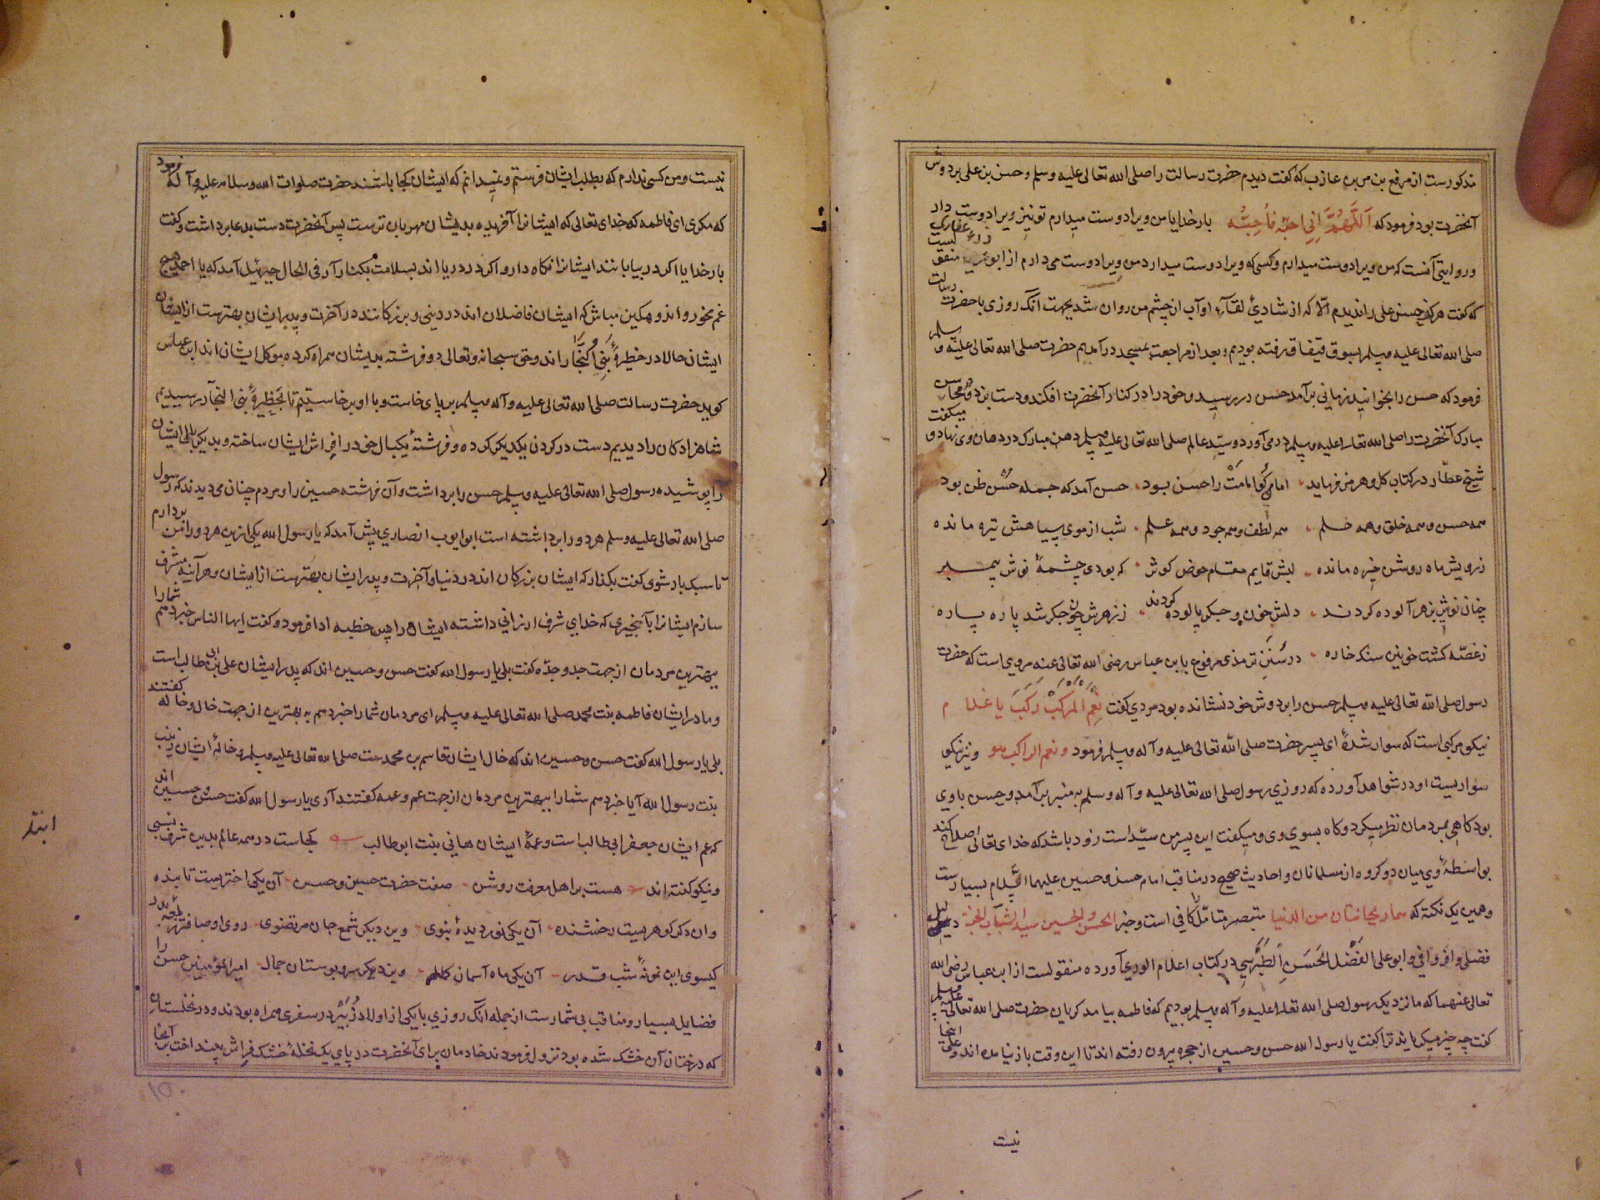 مذکورست از مرفع بن مربن عازب که گفت دیدم حضرت رسالت را صلی الله تعالی علیه وسلم وحسن بن علی بر دوش
آنحضرت بود فرمود که اللهم انی احبه فاحبه بار خدایا من ویرا دوست میدارم تو نیز ویرا دوست دار
وروایتی آنست که من ویرا دوست میدارم وکسی که ویرا دوست میدارد من ویرا دوست می دارم از ابو
که گفت هرگز حسن علی را ندیدم الا که از شادئ لقآء او آب از چشم من روان شد بجهت آنک روزی با حضرت رسالت
صلی الله تعالی علیه وسلم بسوق قینقاع رفته بودیم وبعد از مراجعت بمسجد درآمدیم حضرت صلی الله تعالی علیه وسلم
فرمود که حسن را بخوانید زمانی برآمد حسن در رسید وخود را در کنار آنحضرت افکند ودست بزد ومحاسن
مبارک آنحضرت را صلی الله تعالی علیه وسلم درمی آورد وسید عالم صلی الله تعالی علیه وسلم دهن مبارک در دهان وی نهاد و میگفت
شیخ عطار در کتاب کل وهرمز فرماید امامی کو امامت را حسن بود حسن آمد که جمله حسن ظن بود
همه حسن وهمه خلق وهمه حلم همه لطف وهمه جود وهمه علم شب از موی سیاهش تیره مانده
ز رویش ماه روشن خیره مانده لبش قایم مقام حوض کوثر که بودی چشمهٔ نوش پیمبر
چنان نوشی بزهر آلوده کردند دلش خون وجگر پالوده کردند ز زهرش چون جگر شد پاره پاره
ز غصه کشت خونین سنک خاره در سنن ترمذی مرفوع بابن عباس رضی الله تعالی عنه مرویست که حضرت
رسول صلی الله تعالی علیه وسلم حسن را بر دوش خود نشانده بود مردی گفت نعم المرکب رکبت یا غلام
نیکو مرکبی است که سوار شدهٔ ای پسر حضرت صلی الله تعالی علیه وآله وسلم فرمود ونعم الراکب هو ونیز نیکو
سواریست او در شواهد آورده که روزی رسول صلی الله تعالی علیه وآله وسلم بمنبر برآمد وحسن با وی
بود کاهی بمردمان نظر میکرد وکاه بسوی وی ومیکفت این پسر من سیداست زود باشد که خدای تعالی اصلاح کند
بواسطهٔ وی میان دو کروه از مسلمانان واحادیث صحیح در مناقب امام حسن وحسین علیهما السلام بسیارست
وهمین یک نکته که هما ریحانتان من الدنیا متبصر متامل را کافی است وخبر الحسن والحسین سیدا شباب الجنة دلیل
فضلی وافر وافی وابو علی الفضل الحسن الطبرسی در کتاب اعلام الوری آورده منقولست از ابن عباس رضی الله
تعالی عنهما که ما نزدیک رسول صلی الله تعالی علیه وآله وسلم بودیم که فاطمه بیامد کریان حضرت صلی الله تعالی علیه وسلم
گفت چه چیز میکریاند ترا گفت یا رسول الله حسن وحسین از حجره بیرون رفته اند تا این وقت باز نیامده اند وعلی اینجا
نیست
نیست ومن کسی ندارم که بطلب ایشان فرستم ونمیدانم که ایشان کجا باشند حضرت صلوات الله وسلامه علیه وآله فرمود
که مکری ای فاطمه که خدای تعالی که ایشانرا آفریده بدیشان مهربان ترست پس آنحضرت دست بدعا برداشت وکفت
بار خدایا اکر در بیابانند ایشانرا نکاه دار واکر در دریا اند بسلامت بکنار آر فی الحال جبرئیل آمد که یا احمد هیچ
غم مخور واندوهکین مباش که ایشان فاضلان اند در دنیی وبزرکانند در آخرت وپدر ایشان بهترست از ایشان
ایشان حالا در حظیرهٔ بنی النجار اند وحق سبحانه وتعالی دو فرشته بدیشان همراه کرده موکل ایشان اند ابن عباس
کوید حضرت رسالت صلی الله تعالی علیه وآله وسلم بر پای خاست وبا او برخاستیم تا بحظیرهٔ بنی النجار رسیدیم
شاهزادکان را دیدیم دست در کردن یکدیکر کرده وفرشتهٔ یکبال خود را فراش ایشان ساخته وبدیکر بالی ایشان
را پوشیده رسول صلی الله تعالی علیه وسلم حسن را برداشت وآن فرشته حسین را ومردم چنان می دیدند که رسول
صلی الله تعالی علیه وسلم هر دو را برداشته است ابو ایوب انصاری پیش آمد که یا رسول الله یکی ازین هر دو را من بردارم
تا سبک بار شوی کفت بکذار که ایشان بزرکان اند در دنیا وآخرت وپدر ایشان بهترست از ایشان وهرآینه مشرف
سازم ایشانرا بآنچیزی که خدای شرف ارزانی داشته ایشان را پس خطبه ادا فرمود وکفت ایها الناس خبر دهم شما را
ببهترین مردمان از جهت جد وجده کفت بلی یا رسول الله کفت حسن وحسین اند که پدر ایشان علی بن ابی طالب است
ومادر ایشان فاطمه بنت محمد صلی الله تعالی علیه وسلم ای مردمان شما را خبر دهم به بهترین از جهت خال وخاله کفتند
بلی یا رسول الله کفت حسن وحسین اند که خال ایشان قاسم بن محمدست صلی الله تعالی علیه وسلم وخالهٔ ایشان زینب
بنت رسول الله آیا خبر دهم شما را ببهترین مردمان از جهت عم وعمه کفتند آری یا رسول الله کفت حسن وحسین اند
که عم ایشان جعفر ابی طالب است وعمهٔ ایشان هانی بنت ابو طالب کجاست در همه عالم بدین شرف نسبی
ونیکو کفته اند هست بر اهل معرفت روشن صفت حضرت حسین وحسن آن یکی اختریست تابنده
وان دکر کوهریست رخشنده آن یکی نور دیدهٔ نبوی وین دیکر شمع جان مرتضوی روی اوصاف بدر
کیسوی این نمونهٔ شب قدر آن یکی ماه آسمان کمال وین دیکر سرو بوستان جمال امیرالمؤمنین حسن را
فضایل بسیار ومناقب بی شمارست از جمله آنک روزی با یکی از اولاد زبیر در سفری همراه بودند ودر نخلستان
که درختان آن خشک شده بود نزول فرمودند خادمان برای آنحضرت در پای یک نخلهٔ خشک فراش بینداختند